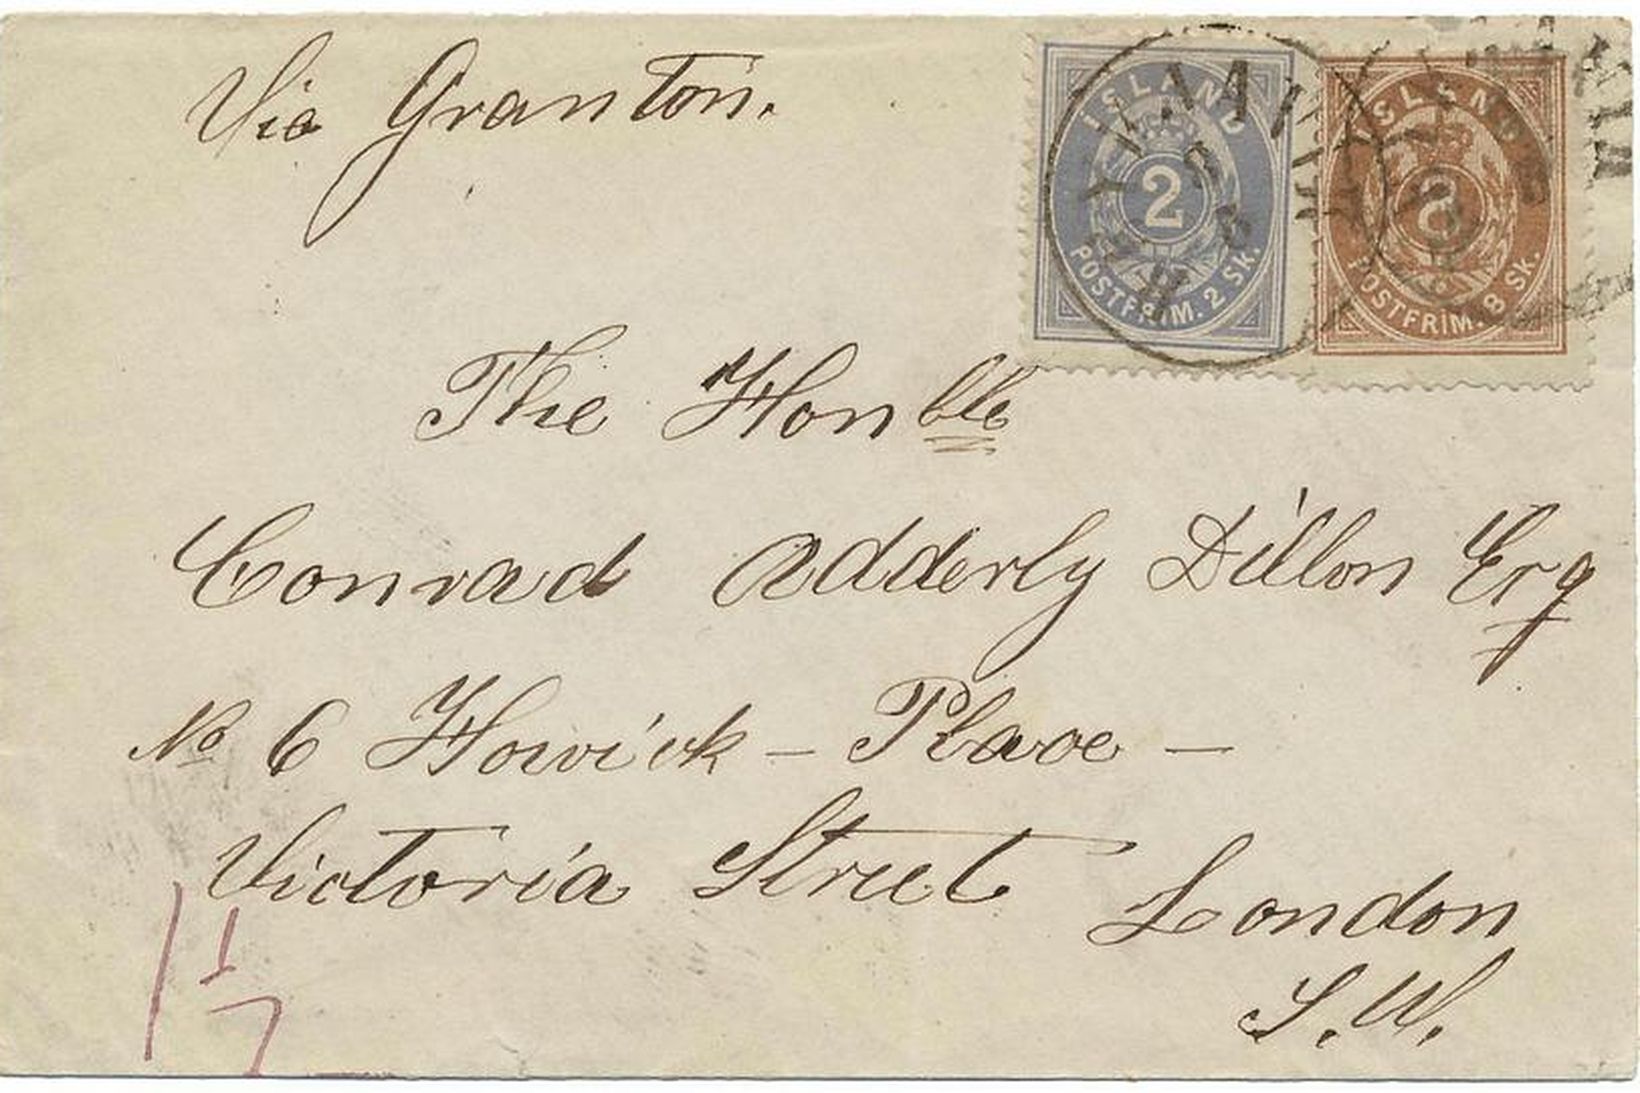 Via Granton.
ISLAND
2
POSTFRIM. 2 SK.
ISLAND
8
POSTFRIM. 8 SK.
The Honble
Conrad Adderly Dillon Esq
No 6 Howick - Place -
Victoria Street London
S.W.